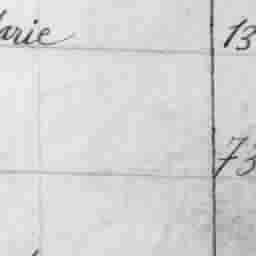 arie 13
73